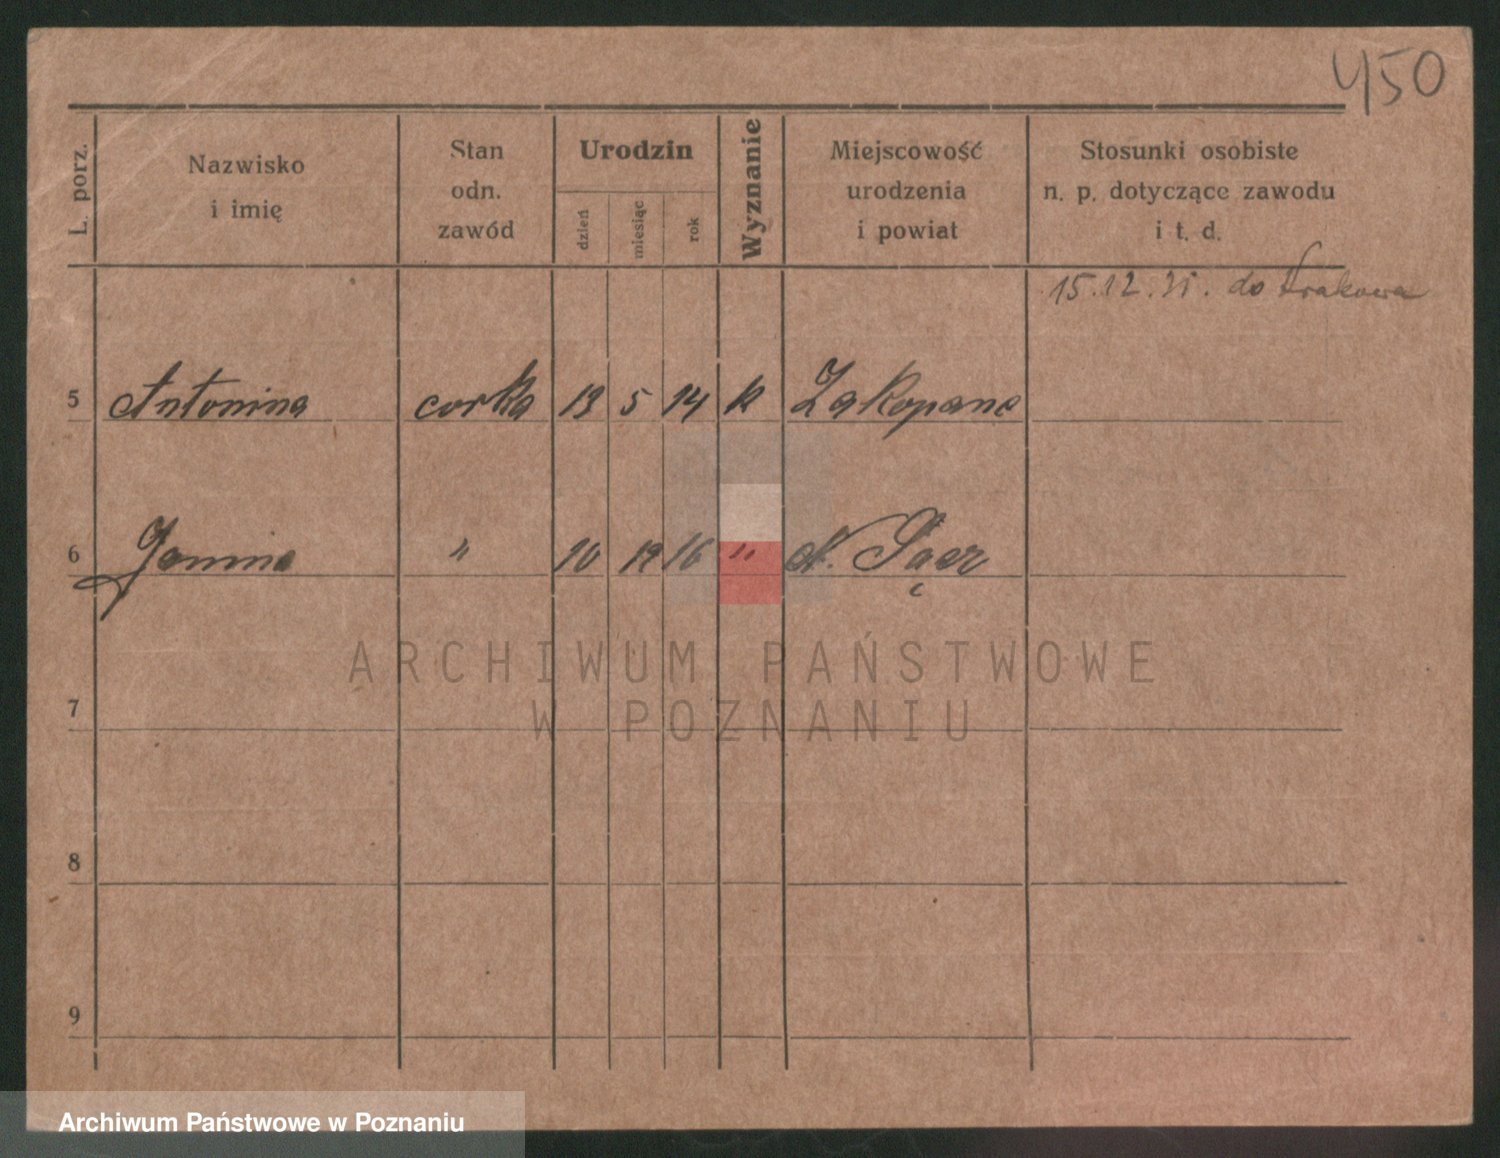 450
L. porz.
Nazwisko
i imię
Stan
odn.
zawód
Urodzin
dzień
miesiąc
rok
Wyznanie
Miejscowość
urodzenia
i powiat
Stosunki osobiste
n. p. dotyczące zawodu
i t. d.
15.12.31. do Krakowa
5 Antonina corka 13 5 14 k Zakopane
6 Janina " 10 12 16 " N. Sącz
ARCHIWUM PAŃSTWOWE
W POZNANIU
7
8
9
Archiwum Państwowe w Poznaniu